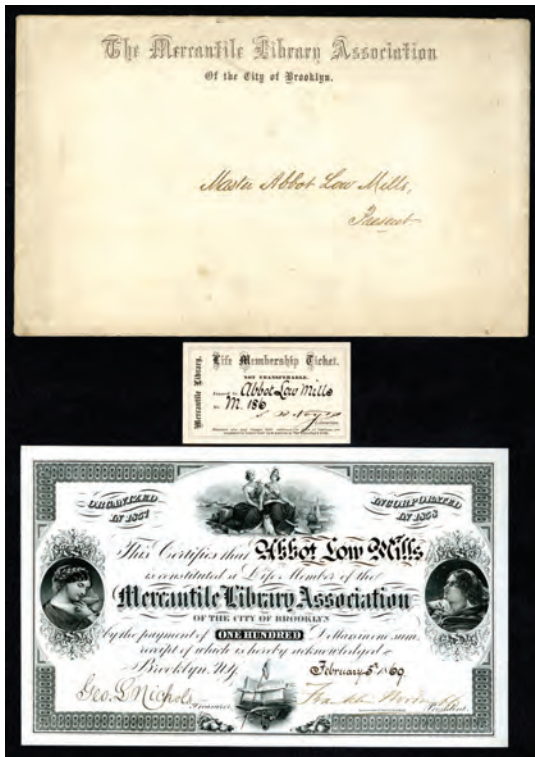 The Mercantile Library Association
Of the City of Brooklyn.
Master Abbot Low Mills,
Present
Mercantile Library.
Life Membership Ticket.
NOT TRANSFERABLE.
Abbot Low Mills
No. M. 186
ORGANIZED
IN 1857
INCORPORATED
IN 1858
This Certifies that Abbot Low Mills
is constituted a Life Member of the
Mercantile Library Association
OF THE CITY OF BROOKLYN
by the payment of ONE HUNDRED Dollars in one sum,
receipt of which is hereby acknowledged
Brooklyn, N.Y. February 5th 1869
Geo. L Nichols Treasurer. Franklin President.